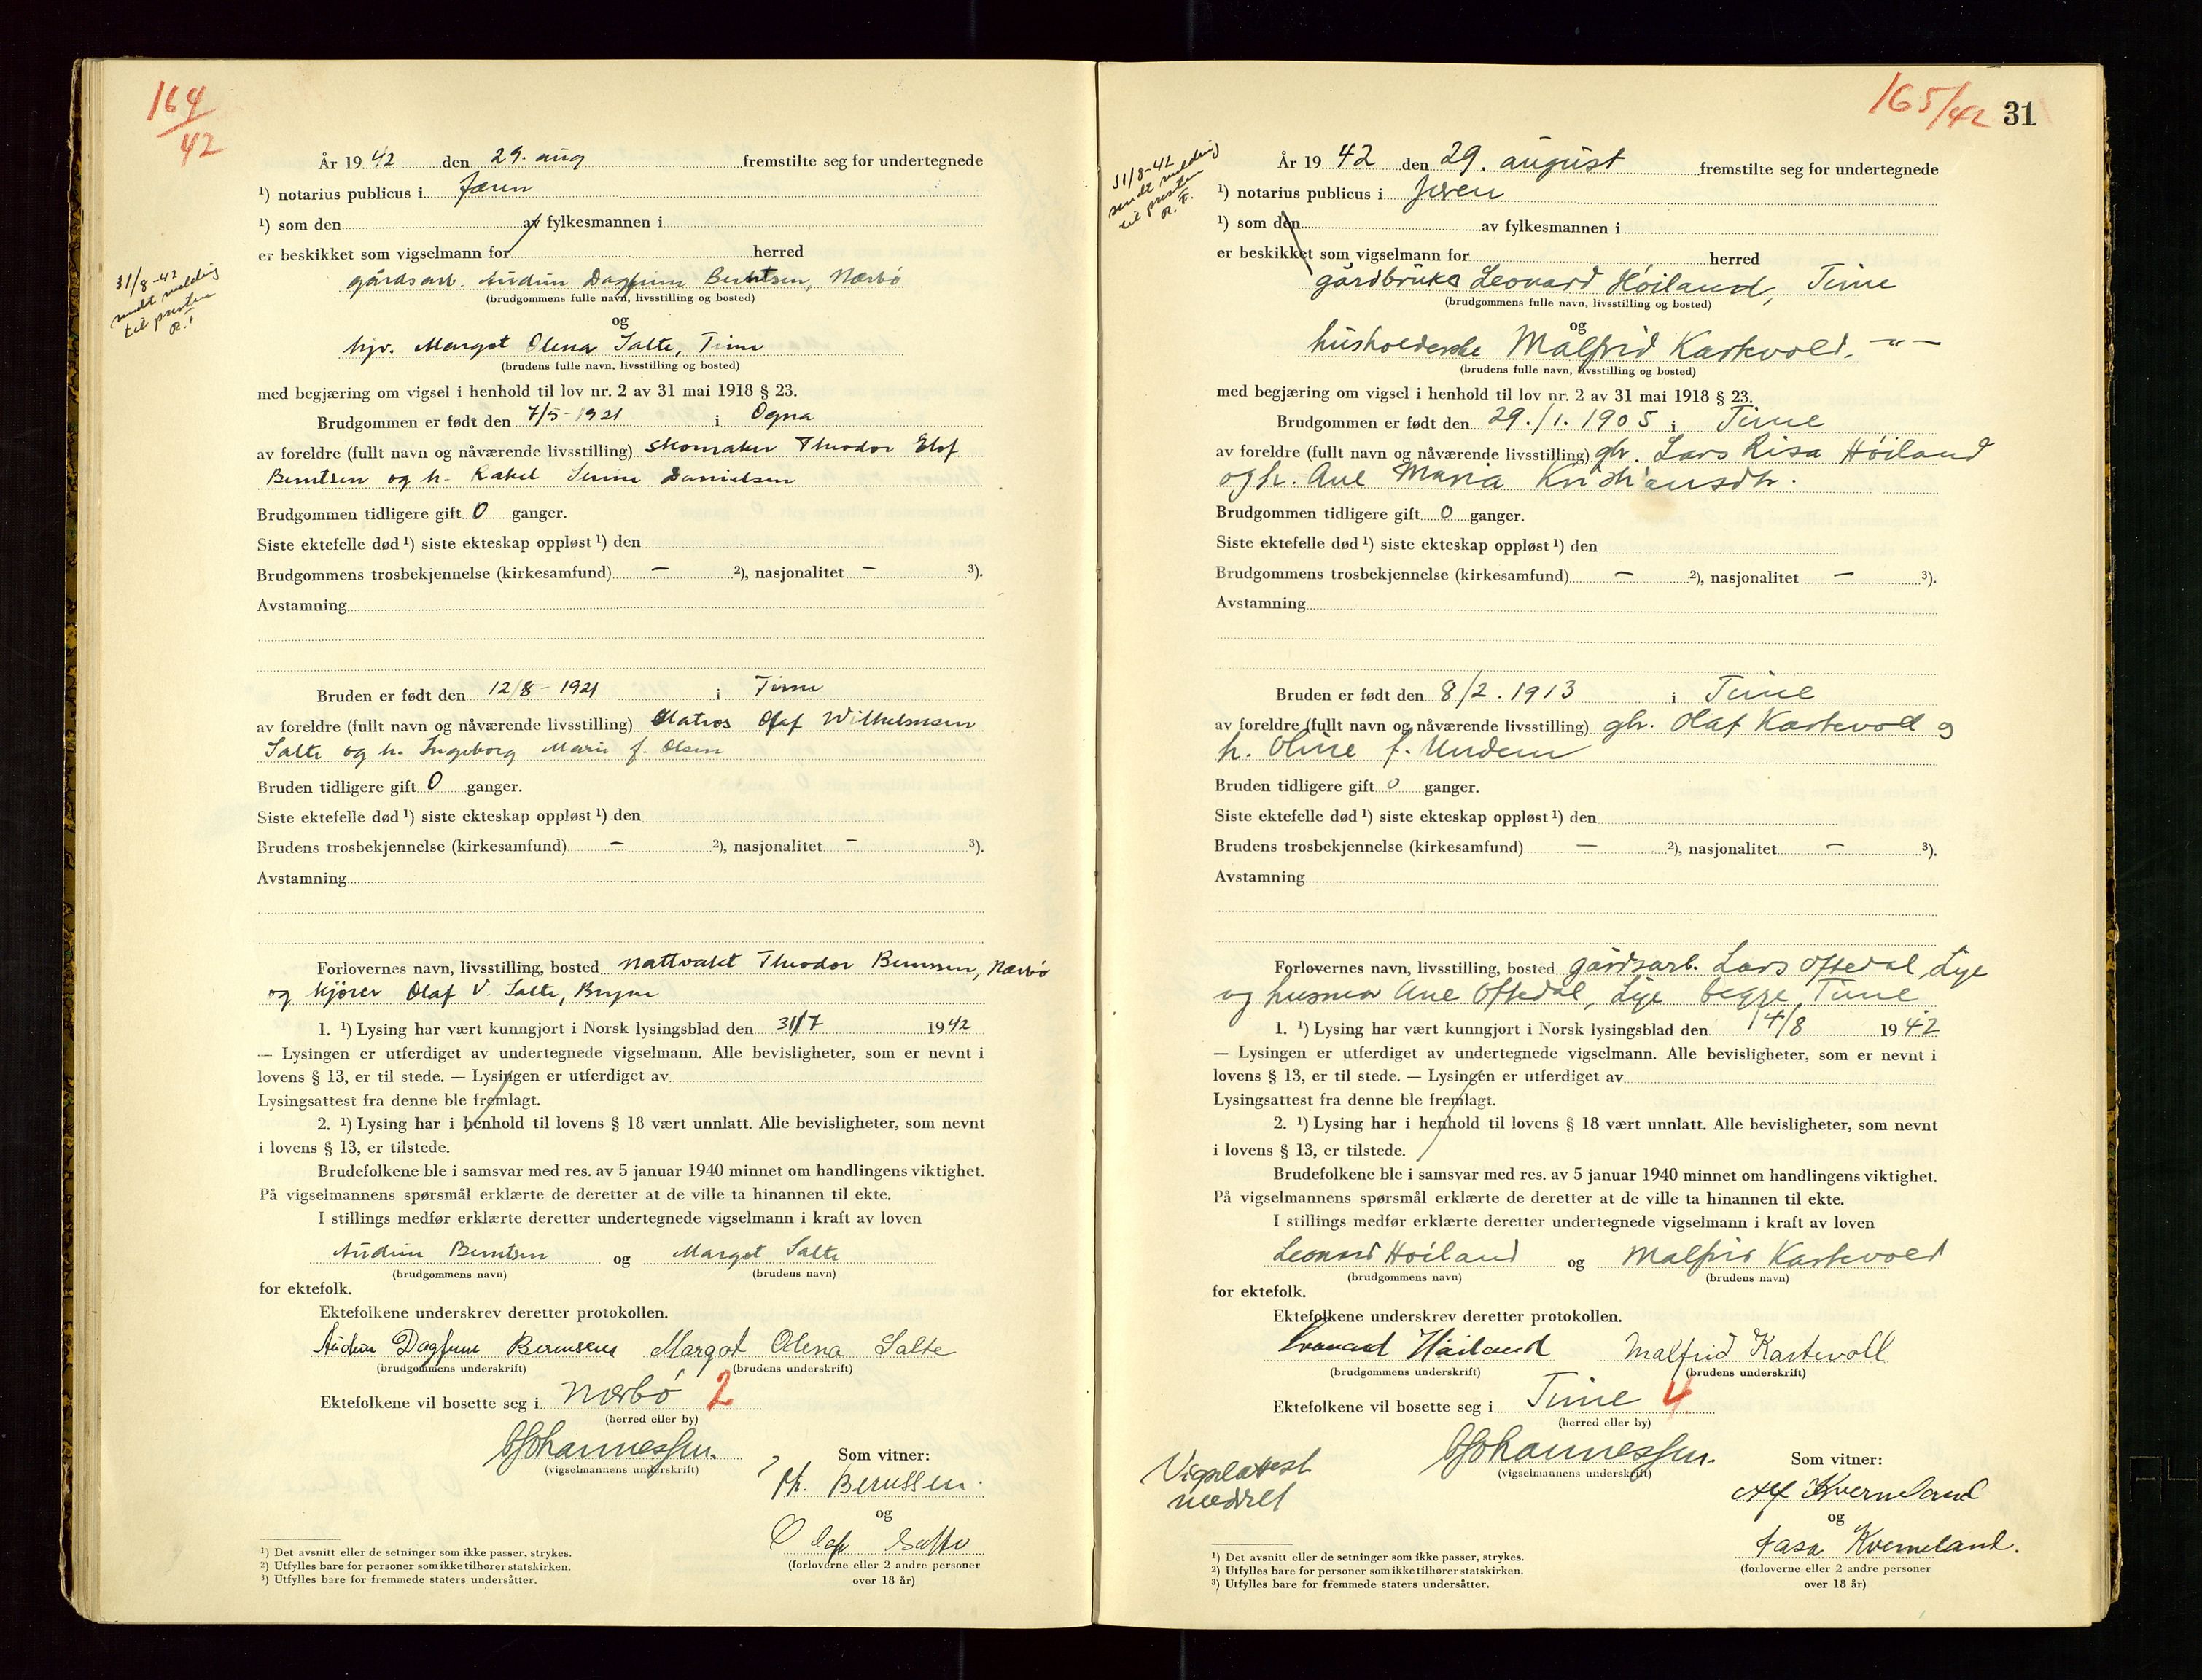 164
42
År 1942 den 29. aug fremstilte seg for undertegnede
¹) notarius publicus i Jæren
¹) som den av fylkesmannen i
er beskikket som vigselmann for herred
31/8-42
sendt melding
til presten
gårdsarb. Audun Dagfinn Berntsen, Nærbø
(brudgommens fulle navn, livsstilling og bosted)
og
hjv. Margot Olena Salte, Time
(brudens fulle navn, livsstilling og bosted)
med begjæring om vigsel i henhold til lov nr. 2 av 31 mai 1918 § 23.
Brudgommen er født den 7/5-1921 i Ogna
av foreldre (fullt navn og nåværende livsstilling) skomaker Theodor Elof
Berntsen og h. Rakel Serine Danielsen
Brudgommen tidligere gift 0 ganger.
Siste ektefelle død ¹) siste ekteskap oppløst ¹) den
Brudgommens trosbekjennelse (kirkesamfund) — ²), nasjonalitet — ³).
Avstamning
Bruden er født den 12/8-1921 i Time
av foreldre (fullt navn og nåværende livsstilling) Matros Olaf Wilhelmsen
Salte og h. Ingeborg Marie f. Olsen
Bruden tidligere gift 0 ganger.
Siste ektefelle død ¹) siste ekteskap oppløst ¹) den
Brudens trosbekjennelse (kirkesamfund) — ²), nasjonalitet — ³).
Avstamning
Forlovernes navn, livsstilling, bosted nattvakt Theodor Berntsen, Nærbø
og kjører Olaf V. Salte, Bryne
1. ¹) Lysing har vært kunngjort i Norsk lysingsblad den 31/7 1942
— Lysingen er utferdiget av undertegnede vigselmann. Alle bevisligheter, som er nevnt i
lovens § 13, er til stede. — Lysingen er utferdiget av
Lysingsattest fra denne ble fremlagt.
2. ¹) Lysing har i henhold til lovens § 18 vært unnlatt. Alle bevisligheter, som nevnt
i lovens § 13, er tilstede.
Brudefolkene ble i samsvar med res. av 5 januar 1940 minnet om handlingens viktighet.
På vigselmannens spørsmål erklærte de deretter at de ville ta hinannen til ekte.
I stillings medfør erklærte deretter undertegnede vigselmann i kraft av loven
Audun Berntsen og Margot Salte
(brudgommens navn) (brudens navn)
for ektefolk.
Ektefolkene underskrev deretter protokollen.
Audun Dagfinn Berntsen Margot Olena Salte
(brudgommens underskrift) (brudens underskrift)
Ektefolkene vil bosette seg i Nærbø 2
(herred eller by)
Johannessen.
(vigselmannens underskrift)
Som vitner:
Th. Berntsen.
og
Olaf Salte
(forloverne eller 2 andre personer
over 18 år)
¹) Det avsnitt eller de setninger som ikke passer, strykes.
²) Utfylles bare for personer som ikke tilhører statskirken.
³) Utfylles bare for fremmede staters undersåtter.
165/42 31
31/8-42
sendt melding
til presten
R. F.
År 1942 den 29. august fremstilte seg for undertegnede
¹) notarius publicus i Jæren
¹) som den av fylkesmannen i
er beskikket som vigselmann for herred
gårdbruker Leonard Høiland, Time
(brudgommens fulle navn, livsstilling og bosted)
og
husholderske Malfrid Kartevold. -"-
(brudens fulle navn, livsstilling og bosted)
med begjæring om vigsel i henhold til lov nr. 2 av 31 mai 1918 § 23.
Brudgommen er født den 29./1. 1905 i Time
av foreldre (fullt navn og nåværende livsstilling) gbr. Lars Risa Høiland
og h. Ane Maria Kristiansdtr.
Brudgommen tidligere gift 0 ganger.
Siste ektefelle død ¹) siste ekteskap oppløst ¹) den
Brudgommens trosbekjennelse (kirkesamfund) — ²), nasjonalitet — ³).
Avstamning
Bruden er født den 8/2. 1913 i Time
av foreldre (fullt navn og nåværende livsstilling) gbr. Olaf Kartevold og
h. Oline f. Undem
Bruden tidligere gift 0 ganger.
Siste ektefelle død ¹) siste ekteskap oppløst ¹) den
Brudens trosbekjennelse (kirkesamfund) — ²), nasjonalitet — ³).
Avstamning
Forlovernes navn, livsstilling, bosted gårdsarb. Lars Oftedal, Lye
og husmor Ane Oftedal, Lye begge, Time
1. ¹) Lysing har vært kunngjort i Norsk lysingsblad den 14/8 1942
— Lysingen er utferdiget av undertegnede vigselmann. Alle bevisligheter, som er nevnt i
lovens § 13, er til stede. — Lysingen er utferdiget av
Lysingsattest fra denne ble fremlagt.
2. ¹) Lysing har i henhold til lovens § 18 vært unnlatt. Alle bevisligheter, som nevnt
i lovens § 13, er tilstede.
Brudefolkene ble i samsvar med res. av 5 januar 1940 minnet om handlingens viktighet.
På vigselmannens spørsmål erklærte de deretter at de ville ta hinannen til ekte.
I stillings medfør erklærte deretter undertegnede vigselmann i kraft av loven
Leonard Høiland og Malfrid Kartevold
(brudgommens navn) (brudens navn)
for ektefolk.
Ektefolkene underskrev deretter protokollen.
Leonard Høiland Malfrid Kartevoll
(brudgommens underskrift) (brudens underskrift)
Ektefolkene vil bosette seg i Time 4
(herred eller by)
Johannessen.
(vigselmannens underskrift)
Vigselattest
meddelt
Som vitner:
Alf Kverneland
og
Kverneland.
(forloverne eller 2 andre personer
over 18 år)
¹) Det avsnitt eller de setninger som ikke passer, strykes.
²) Utfylles bare for personer som ikke tilhører statskirken.
³) Utfylles bare for fremmede staters undersåtter.